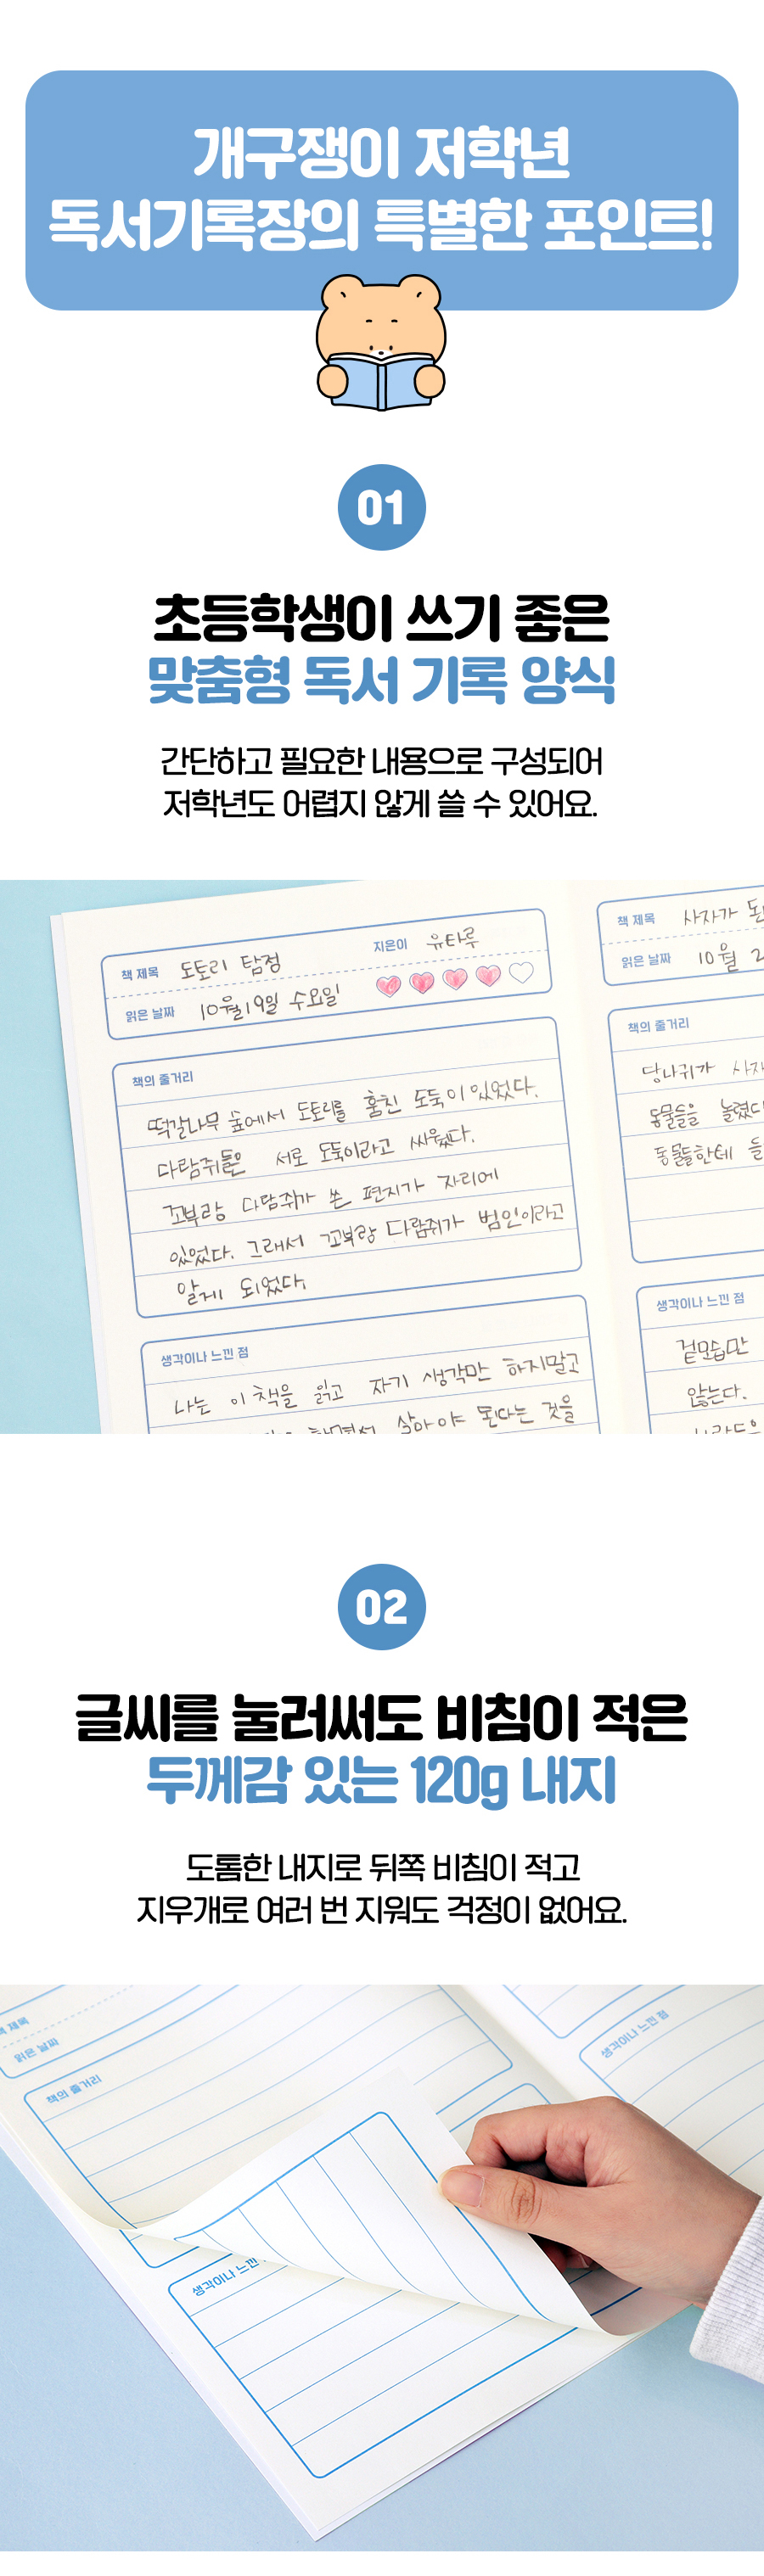 개구쟁이 저학년
독서기록장의 특별한 포인트!
01
초등학생이 쓰기 좋은
맞춤형 독서 기록 양식
간단하고 필요한 내용으로 구성되어
저학년도 어렵지 않게 쓸 수 있어요.
책 제목 도토리 탐정 지은이 유타루
읽은 날짜 10월19일 수요일
책의 줄거리
떡갈나무 숲에서 도토리를 훔친 도둑이 있었다.
다람쥐들은 서로 도둑이라고 싸웠다.
꼬부랑 다람쥐가 쓴 편지가 자리에
있었다. 그래서 꼬부랑 다람쥐가 범인이라고
알게 되었다.
생각이나 느낀 점
나는 이 책을 읽고 자기 생각만 하지말고
살아야 된다는 것을
책 제목 사자가
읽은 날짜 10월 2
책의 줄거리
당나귀가
동물들을 놀렸다
동물들한테
생각이나 느낀 점
겉모습만
않는다.
02
글씨를 눌러써도 비침이 적은
두께감 있는 120g 내지
도톰한 내지로 뒤쪽 비침이 적고
지우개로 여러 번 지워도 걱정이 없어요.
책 제목
읽은 날짜
책의 줄거리
생각이나 느낀 점
생각이나 느낀